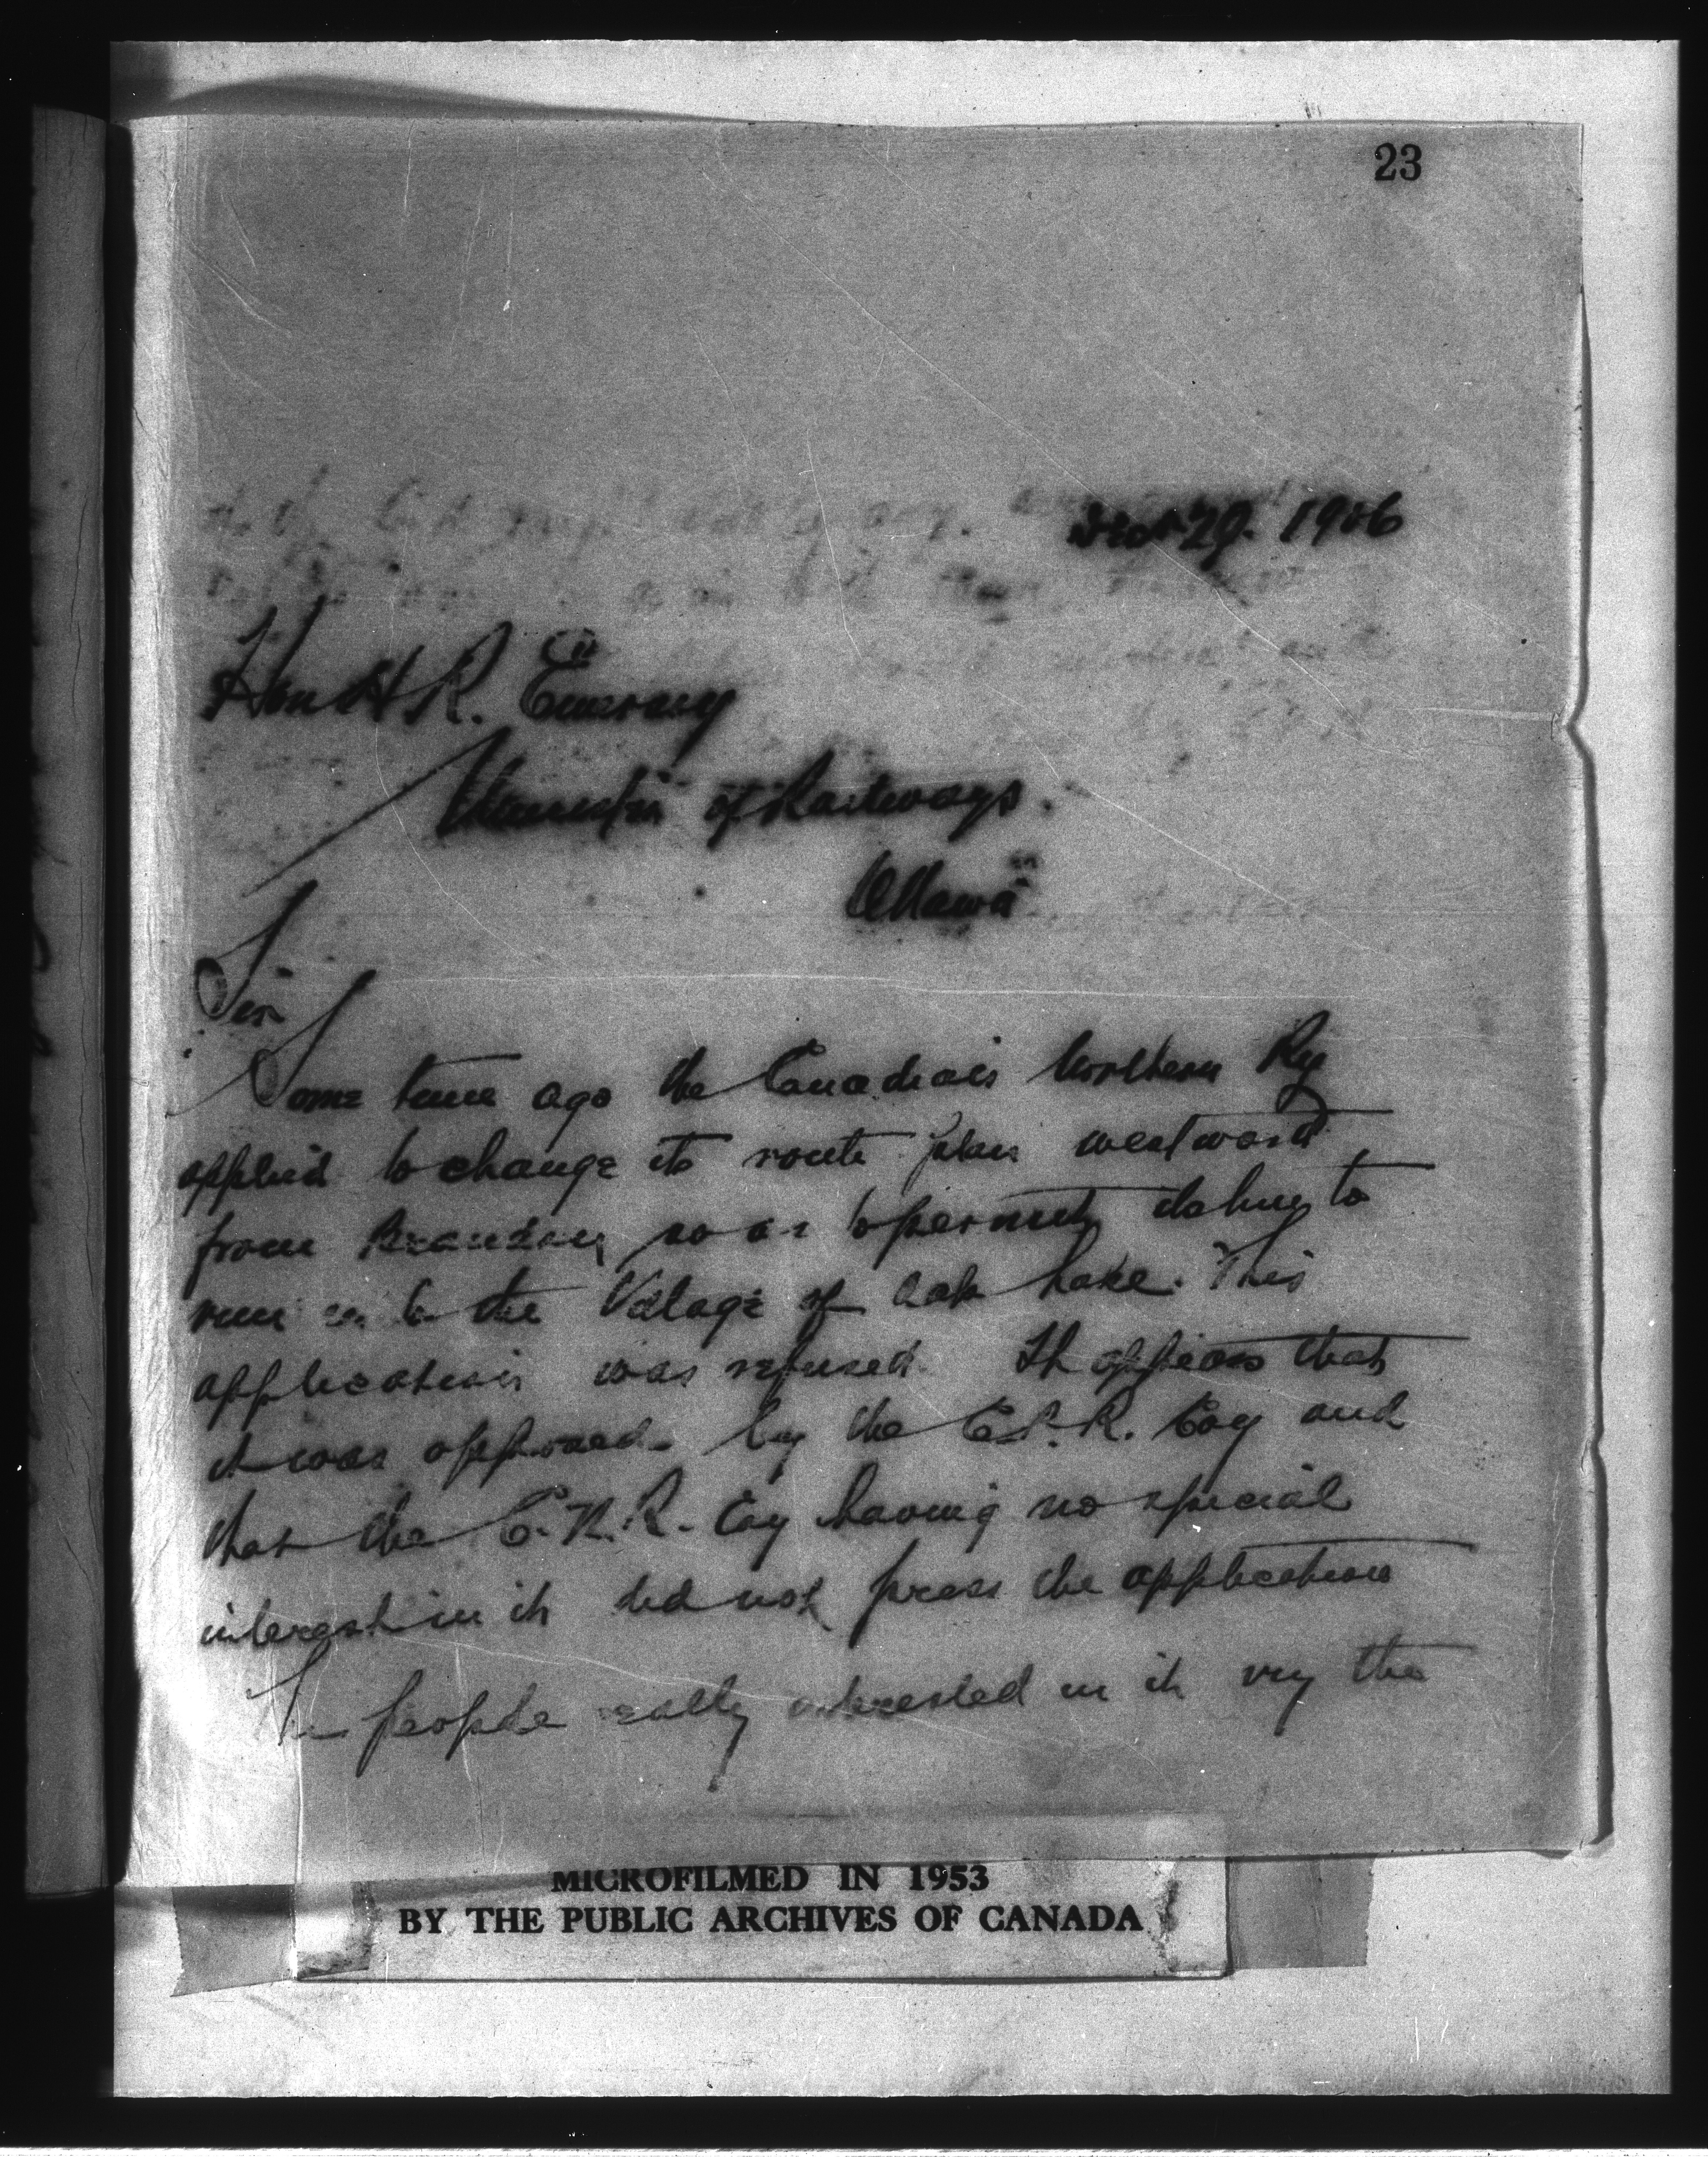 23
29. 1906
Hon H R. Emmerson
Minister of Railways.
Ottawa
Sir
Some time ago the Canadian Northern Ry
applied to change its route plan westward
from Brandon so as to permit its line to
run in to the Village of Oak Lake. This
application was refused. It appears that
it was opposed by the C.P.R. Coy and
that the C.N.R. Coy having no special
interest in it did not press the application
The people really interested in it viz the
MICROFILMED IN 1953
BY THE PUBLIC ARCHIVES OF CANADA